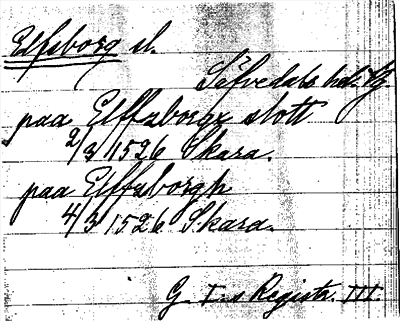 Elfsborg sl.
Säfvedals hd. Vg.
paa Elffzborgx slott
2/3 1526 Skara.
paa Elffzborgh
4/3 1526 Skara.
G. I:s Registr. III.